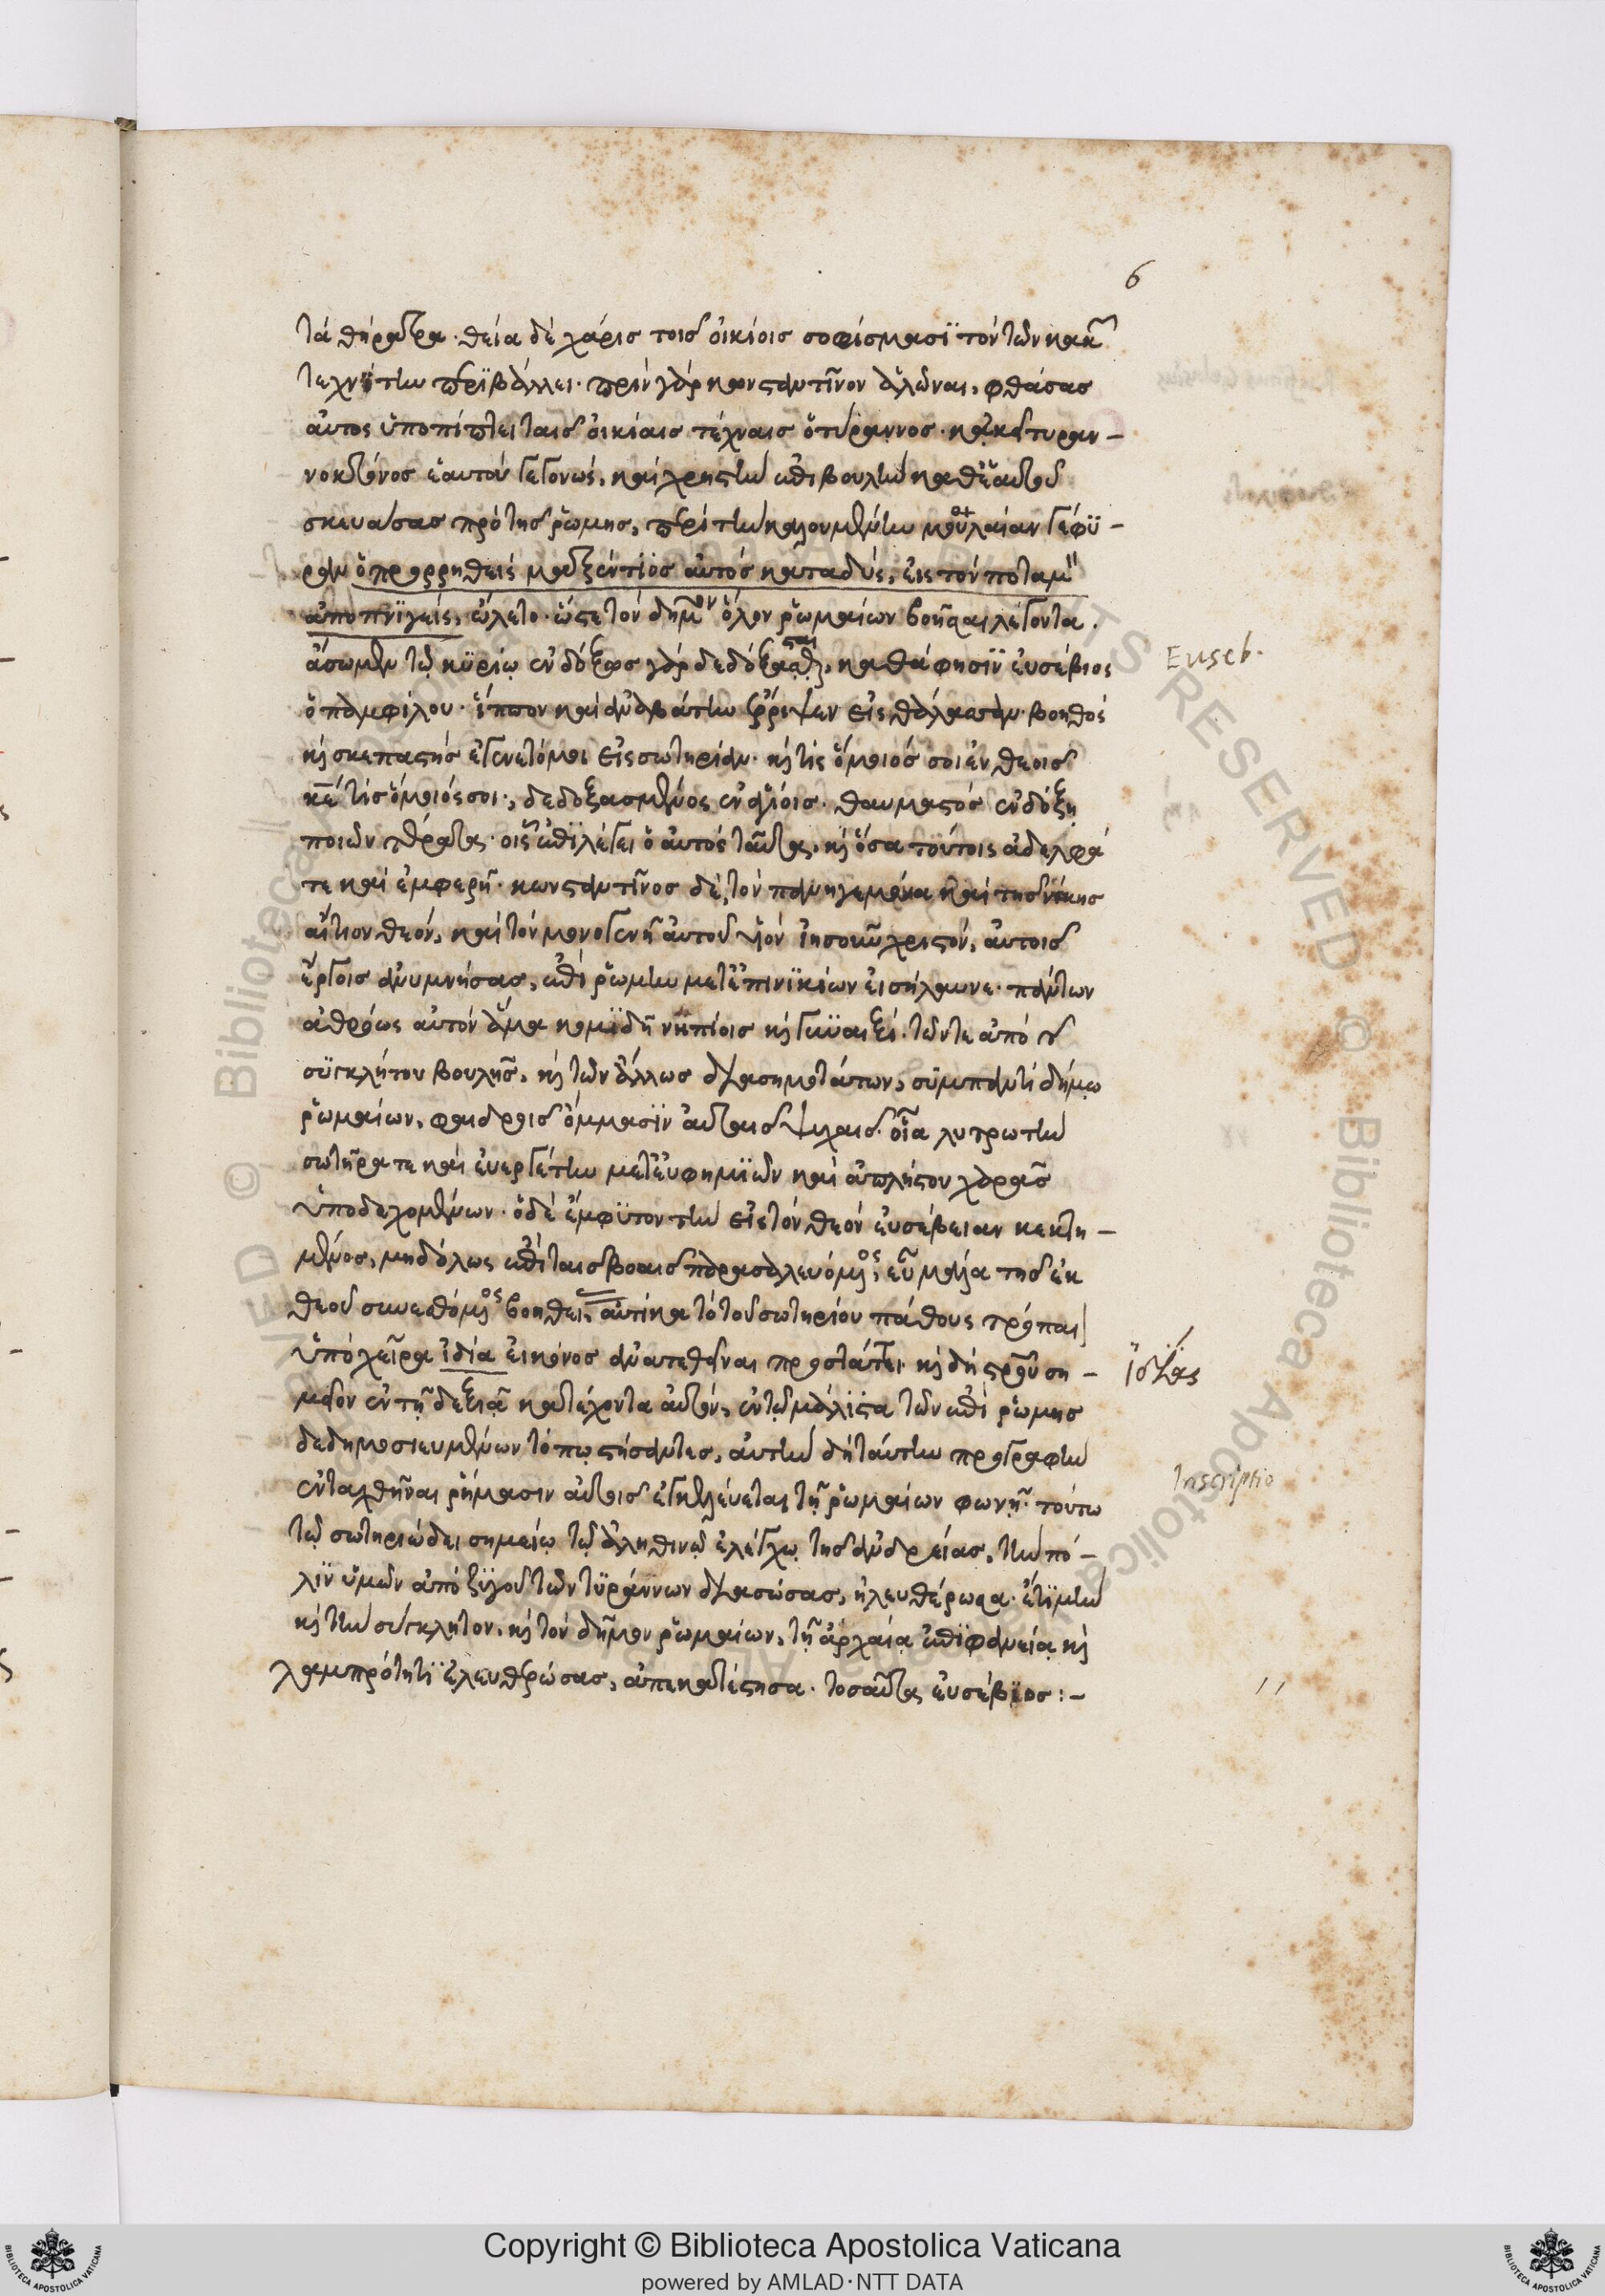 6
τὰ θήρατρα· θεία δὲ χάρις τοῖς οἰκίοις σοφίσμασϊ τὸν τῶν κακῶν
τεχνίτην περϊβάλλει· πρὶν γὰρ κωνσταντῖνον ἁλῶναι, φθάσας
αὐτὸς ὑποπίπτει ταῖς οἰκίαις τέχναις ὁ τύραννος· καὶ τυραν-
νοκτόνος ἑαυτοῦ γεγονώς, καὶ χρηστὴν ἐπιβουλὴν καθ' ἑαυτοῦ
σκευάσας πρὸ τῆς ῥώμης, περὶ τὴν καλουμένην μουλαίαν γέφϋ-
ραν ὁ προρρηθεὶς μαξέντϊος αὐτὸς καταδύς, εἰς τὸν ποταμὸν
ἀποπνϊγείς, ὤλετο· ὥστε τὸν δῆμον ὅλον ῥωμαίων βοῆσαι λέγοντα·
ἄσωμεν τῷ κϋρίῳ ἐνδόξως γὰρ δεδόξασται, καθά φησϊν εὐσέβιος
Euseb.
ὁ παμφίλου· ἵππον καὶ ἀναβάτην ἔρριψεν εἰς θάλασσαν· βοηθὸς
κ(αὶ) σκεπαστὴς ἐγένετό μοι εἰς σωτηρίαν· κ(αὶ) τίς ὅμοιός σοι ἐν θεοῖς
κε τίς ὅμοιός σοι·, δεδοξασμένος ἐν ἁγίοις· θαυμαστὸς ἐν δόξῃ
ποιῶν τέρατα· οἷς ἐπϊλέγει ὁ αὐτὸς ταῦτα, κ(αὶ) ὅσα τούτοις ἀδελφά
τε καὶ ἐμφερῆ· κωνσταντῖνος δὲ, τὸν πανηγεμόνα καὶ τῆς νίκης
αἴτιον θεόν, καὶ τὸν μονογενῆ αὐτοῦ υἱὸν ἰησοῦν χριστόν, αὐτοῖς
ἔργοις ἀνυμνήσας, ἐπὶ ῥώμην μετ' ἐπινϊκίων εἰσήλαυνε· πάντων
ἀθρόως αὐτὸν ἅμα κομϊδῆ νηπίοις κ(αὶ) γυναιξί· τῶν τε ἀπὸ τῆς
σϋγκλήτου βουλῆς, κ(αὶ) τῶν ἄλλως διασημοτάτων, σύμπαντι δήμῳ
ῥωμαίων, φαιδροῖς ὄμμασϊν αὐταῖς ψυχαῖς· οἷα λυτρωτὴν
σωτῆρα τε καὶ εὐεργέτην μετ' εὐφημϊῶν καὶ ἀπλήστου χαρᾶς
ὑποδεχομένων· ὁ δὲ ἔμφϋτον τὴν εἰς τὸν θεὸν εὐσέβειαν κεκτη-
μένος, μηδ' ὅλως ἐπὶ ταῖς βοαῖς παρασαλευόμενος, εὖ μάλα τῆς ἐκ
θεοῦ συνεσθόμενος βοηθείας αὐτίκα τὸ τοῦ σωτηρίου πάθους τρόπαι
ὑπὸ χεῖρα ἰδία εἰκόνος ἀνατεθῆναι προστάττει· κ(αὶ) δὴ σταυροῦ ση-
ἰδίας
μεῖον ἐν τῇ δεξιᾷ κατέχοντα αὐτόν, ἐν τῷ μάλϊστα τῶν ἐπὶ ῥώμης
δεδημοσιευμένων τόπῳ στήσαντες, αὐτὴν δὴ ταύτην προγραφὴν
ἐνταχθῆναι ῥήμασιν αὐτοῖς ἐγκελεύεται τῇ ῥωμαίων φωνῇ· τούτω
Inscriptio
τῷ σωτηριώδει σημείῳ τῷ ἀληθινῷ ἐλέγχῳ τῆς ἀνδρείας, τὴν πό-
λϊν ὑμῶν ἀπὸ ζϋγοῦ τῶν τϋράννων διασώσας, ἠλευθέρωσα· ἔτϊ μὴν
κ(αὶ) τὴν σύγκλητον, κ(αὶ) τὸν δῆμον ῥωμαίων, τῇ ἀρχαίᾳ ἐπϊφανείᾳ κ(αὶ)
λαμπρότητϊ ἐλευθερώσας, ἀπεκατέστησα· τοσαῦτα εὐσέβϊος:-
Copyright © Biblioteca Apostolica Vaticana
powered by AMLAD·NTT DATA